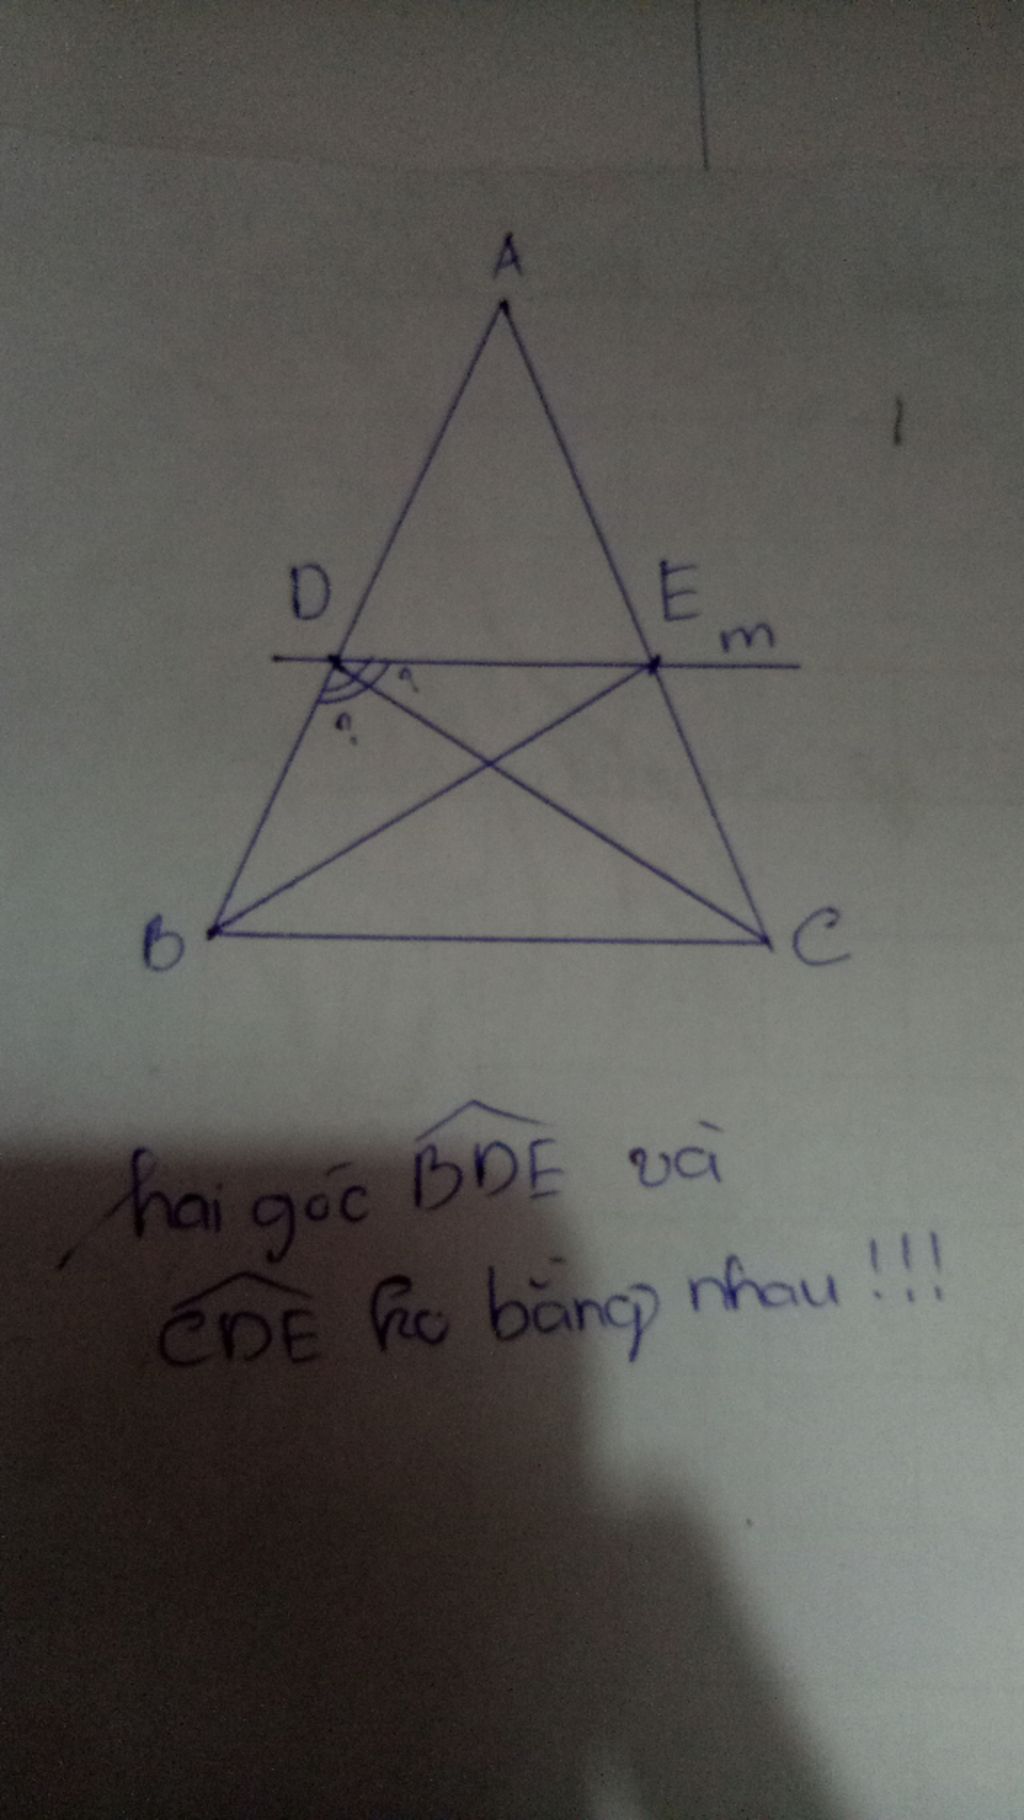 A
D
E
m
?
?
B
C
hai góc BDE và
CDE ko bằng nhau !!!